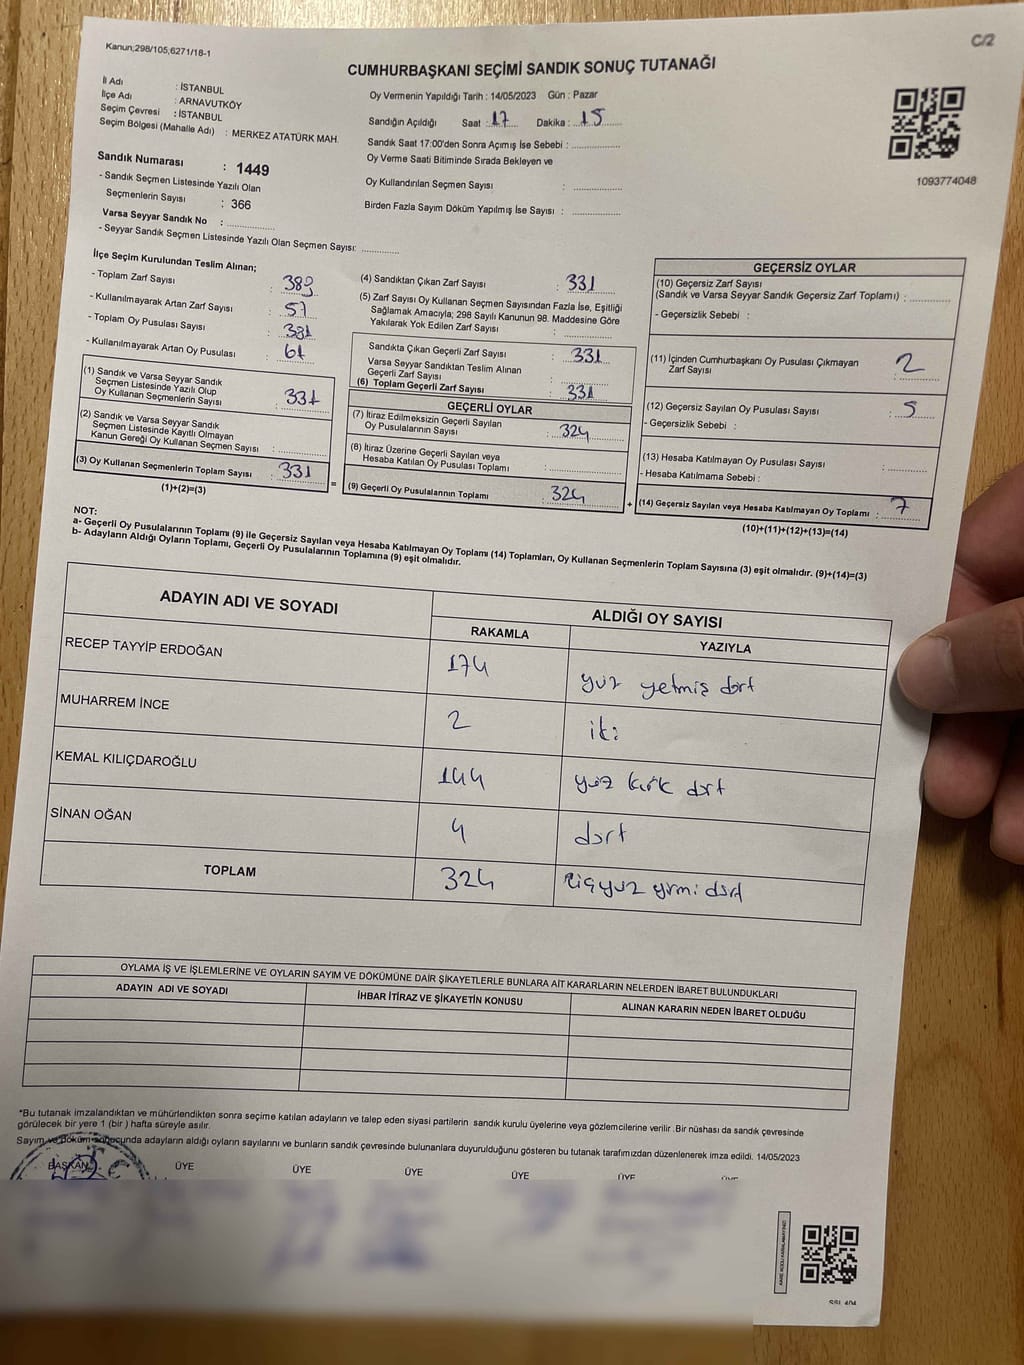 Kanun;298/105,6271/18-1
C/2
CUMHURBAŞKANI SEÇİMİ SANDIK SONUÇ TUTANAĞI
İl Adı : İSTANBUL
İlçe Adı : ARNAVUTKÖY
Seçim Çevresi : İSTANBUL
Seçim Bölgesi (Mahalle Adı) : MERKEZ ATATÜRK MAH.
Sandık Numarası : 1449
- Sandık Seçmen Listesinde Yazılı Olan
Seçmenlerin Sayısı : 366
Varsa Seyyar Sandık No :
- Seyyar Sandık Seçmen Listesinde Yazılı Olan Seçmen Sayısı:
Oy Vermenin Yapıldığı Tarih : 14/05/2023 Gün : Pazar
Sandığın Açıldığı Saat : 17 Dakika : 15
Sandık Saat 17:00'den Sonra Açımış İse Sebebi :
Oy Verme Saati Bitiminde Sırada Bekleyen ve
Oy Kullandırılan Seçmen Sayısı :
Birden Fazla Sayım Döküm Yapılmış İse Sayısı :
1093774048
İlçe Seçim Kurulundan Teslim Alınan;
- Toplam Zarf Sayısı : 389
- Kullanılmayarak Artan Zarf Sayısı : 57
- Toplam Oy Pusulası Sayısı :
- Kullanılmayarak Artan Oy Pusulası : 61
(1) Sandık ve Varsa Seyyar Sandık
Seçmen Listesinde Yazılı Olup
Oy Kullanan Seçmenlerin Sayısı : 331
(2) Sandık ve Varsa Seyyar Sandık
Seçmen Listesinde Kayıtlı Olmayan
Kanun Gereği Oy Kullanan Seçmen Sayısı :
(3) Oy Kullanan Seçmenlerin Toplam Sayısı : 331
(1)+(2)=(3)
(4) Sandıktan Çıkan Zarf Sayısı : 331
(5) Zarf Sayısı Oy Kullanan Seçmen Sayısından Fazla İse, Eşitliği
Sağlamak Amacıyla; 298 Sayılı Kanunun 98. Maddesine Göre
Yakılarak Yok Edilen Zarf Sayısı :
Sandıkta Çıkan Geçerli Zarf Sayısı : 331
Varsa Seyyar Sandıktan Teslim Alınan
Geçerli Zarf Sayısı :
(6) Toplam Geçerli Zarf Sayısı : 331
GEÇERLİ OYLAR
(7) İtiraz Edilmeksizin Geçerli Sayılan
Oy Pusulalarının Sayısı : 324
(8) İtiraz Üzerine Geçerli Sayılan veya
Hesaba Katılan Oy Pusulası Toplamı :
= (9) Geçerli Oy Pusulalarının Toplamı : 324 +
GEÇERSİZ OYLAR
(10) Geçersiz Zarf Sayısı
(Sandık ve Varsa Seyyar Sandık Geçersiz Zarf Toplamı) :
- Geçersizlik Sebebi :
(11) İçinden Cumhurbaşkanı Oy Pusulası Çıkmayan
Zarf Sayısı : 2
(12) Geçersiz Sayılan Oy Pusulası Sayısı : 5
- Geçersizlik Sebebi :
(13) Hesaba Katılmayan Oy Pusulası Sayısı :
- Hesaba Katılmama Sebebi :
(14) Geçersiz Sayılan veya Hesaba Katılmayan Oy Toplamı : 7
(10)+(11)+(12)+(13)=(14)
NOT:
a- Geçerli Oy Pusulalarının Toplamı (9) ile Geçersiz Sayılan veya Hesaba Katılmayan Oy Toplamı (14) Toplamları, Oy Kullanan Seçmenlerin Toplam Sayısına (3) eşit olmalıdır. (9)+(14)=(3)
b- Adayların Aldığı Oyların Toplamı, Geçerli Oy Pusulalarının Toplamına (9) eşit olmalıdır.
ADAYIN ADI VE SOYADI ALDIĞI OY SAYISI
RAKAMLA YAZIYLA
RECEP TAYYİP ERDOĞAN 174 yüz yetmiş dört
MUHARREM İNCE 2 iki
KEMAL KILIÇDAROĞLU 144 yüz kırk dört
SİNAN OĞAN 4 dört
TOPLAM 324 üçyüz yirmi dört
OYLAMA İŞ VE İŞLEMLERİNE VE OYLARIN SAYIM VE DÖKÜMÜNE DAİR ŞİKAYETLERLE BUNLARA AİT KARARLARIN NELERDEN İBARET BULUNDUKLARI
ADAYIN ADI VE SOYADI İHBAR İTİRAZ VE ŞİKAYETİN KONUSU ALINAN KARARIN NEDEN İBARET OLDUĞU
*Bu tutanak imzalandıktan ve mühürlendikten sonra seçime katılan adayların ve talep eden siyasi partilerin sandık kurulu üyelerine veya gözlemcilerine verilir .Bir nüshası da sandık çevresinde
görülecek bir yere 1 (bir ) hafta süreyle asılır.
Sayım ve döküm sonucunda adayların aldığı oyların sayılarını ve bunların sandık çevresinde bulunanlara duyurulduğunu gösteren bu tutanak tarafımızdan düzenlenerek imza edildi. 14/05/2023
BAŞKAN ÜYE ÜYE ÜYE ÜYE ÜYE ÜYE